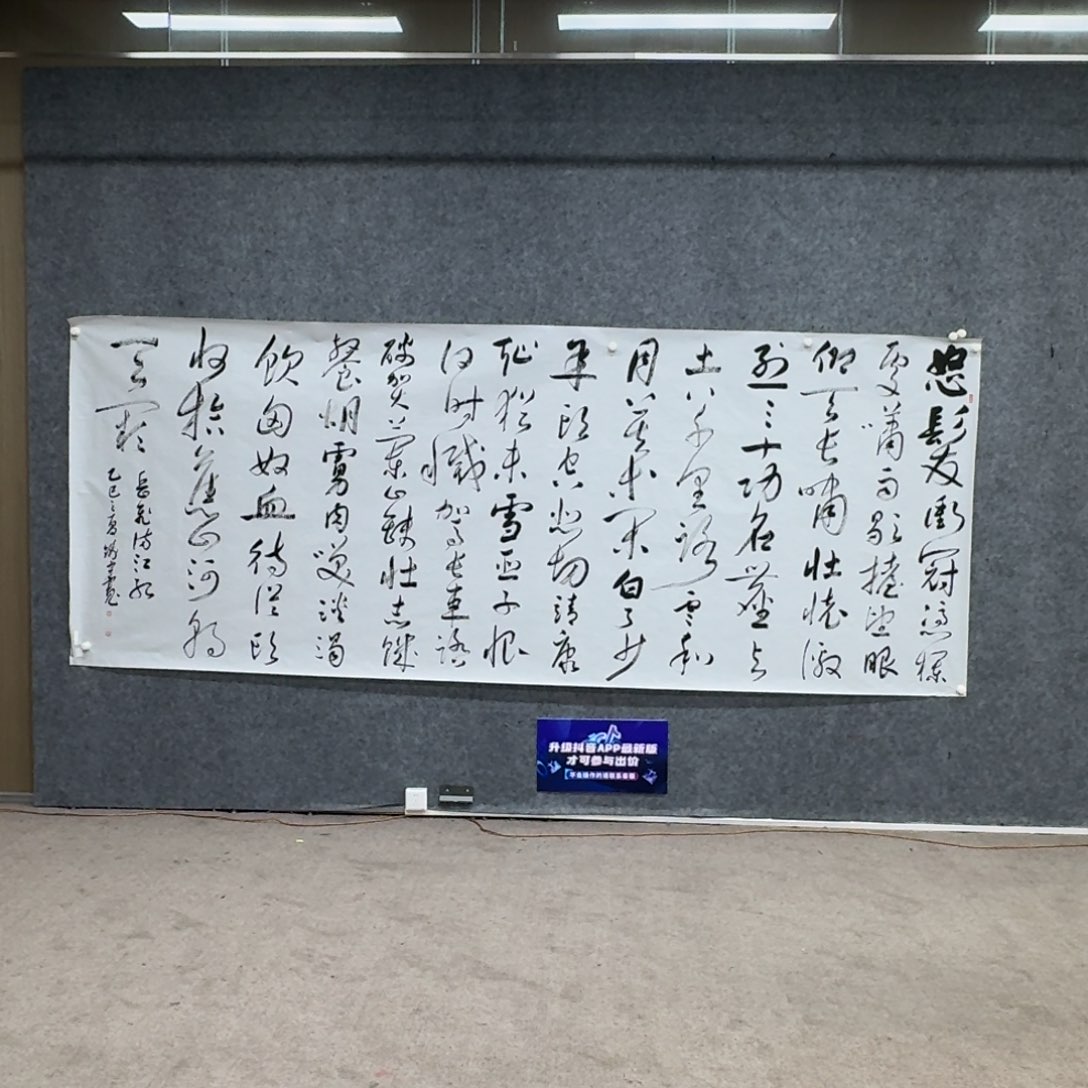 怒髮衝冠憑欄
處瀟瀟雨歇擡望眼
仰天長嘯壯懷激
烈三十功名塵與
土八千里路雲和
月莫等閒白了少
年頭空悲切靖康
恥猶未雪臣子恨
何時滅駕長車踏
破賀蘭山缺壯志饑
餐胡虜肉笑談渴
飲匈奴血待從頭
收拾舊山河朝
天闕
岳飛滿江紅
乙巳之夏
升级抖音APP最新版
才可参与出价
不会操作的请联系客服